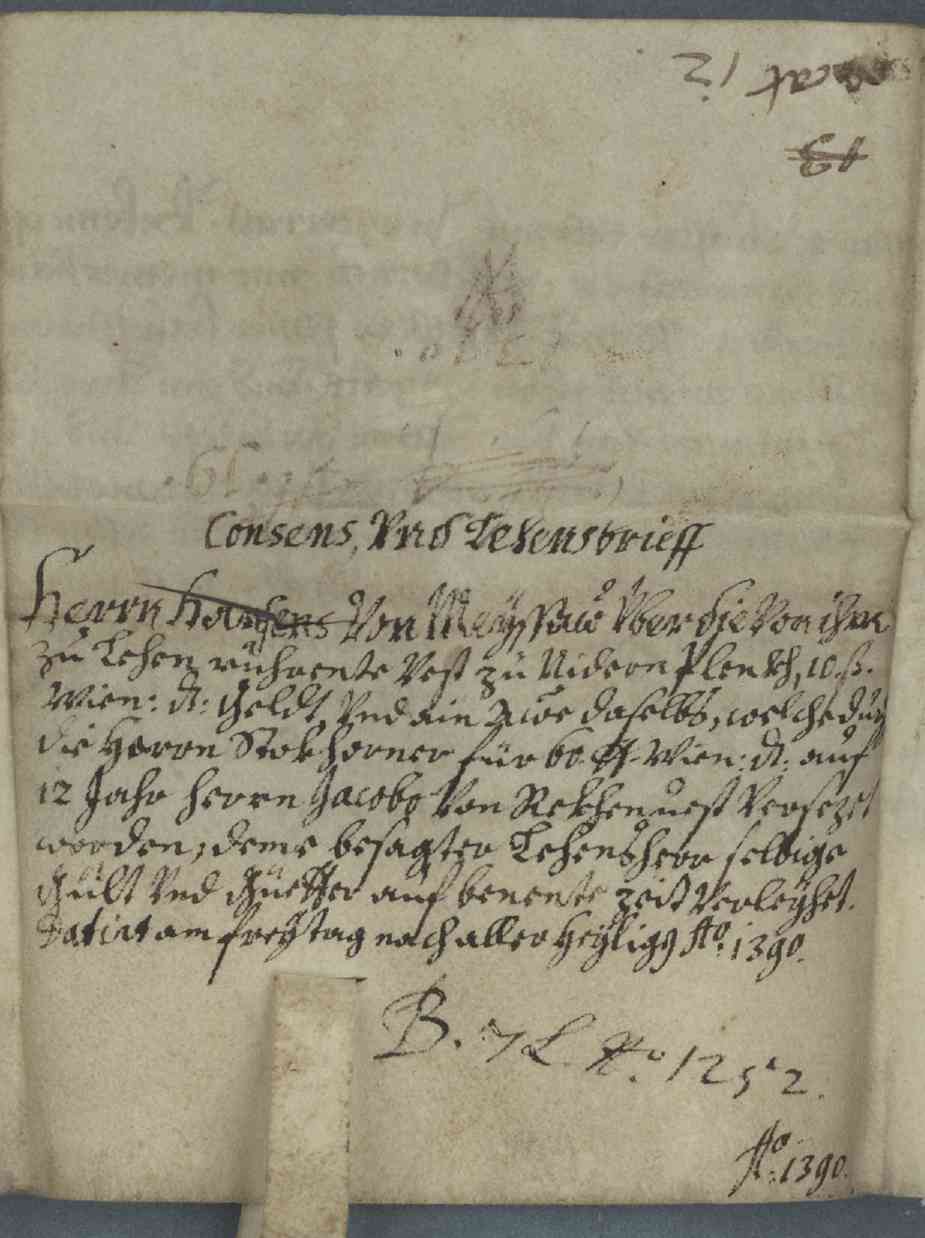 vacat 12
13
Consens, Vnd Lehensbrieff
Herrn Hansens Von Meyssaw Vber die Von ihm
zu Lehen rührente Vest zu Nidern Plenkh, 10. ß.
Wien: ₰: Geldt, Vnd ain Awe daselbs, welche durch
die Herrn Stokhorner für 60 ℔ Wien: ₰: auf
12 Jahr herrn Jacobo Von Rekhenuest Versezet
worden, deme besagter Lehensherr selbige
Gült Vnd Güetter auf benente zeit Verleyhet.
Datirt am freytag nach aller Heylig: Ao. 1390.
B. 7 L. No. 1252.
Ao. 1390.